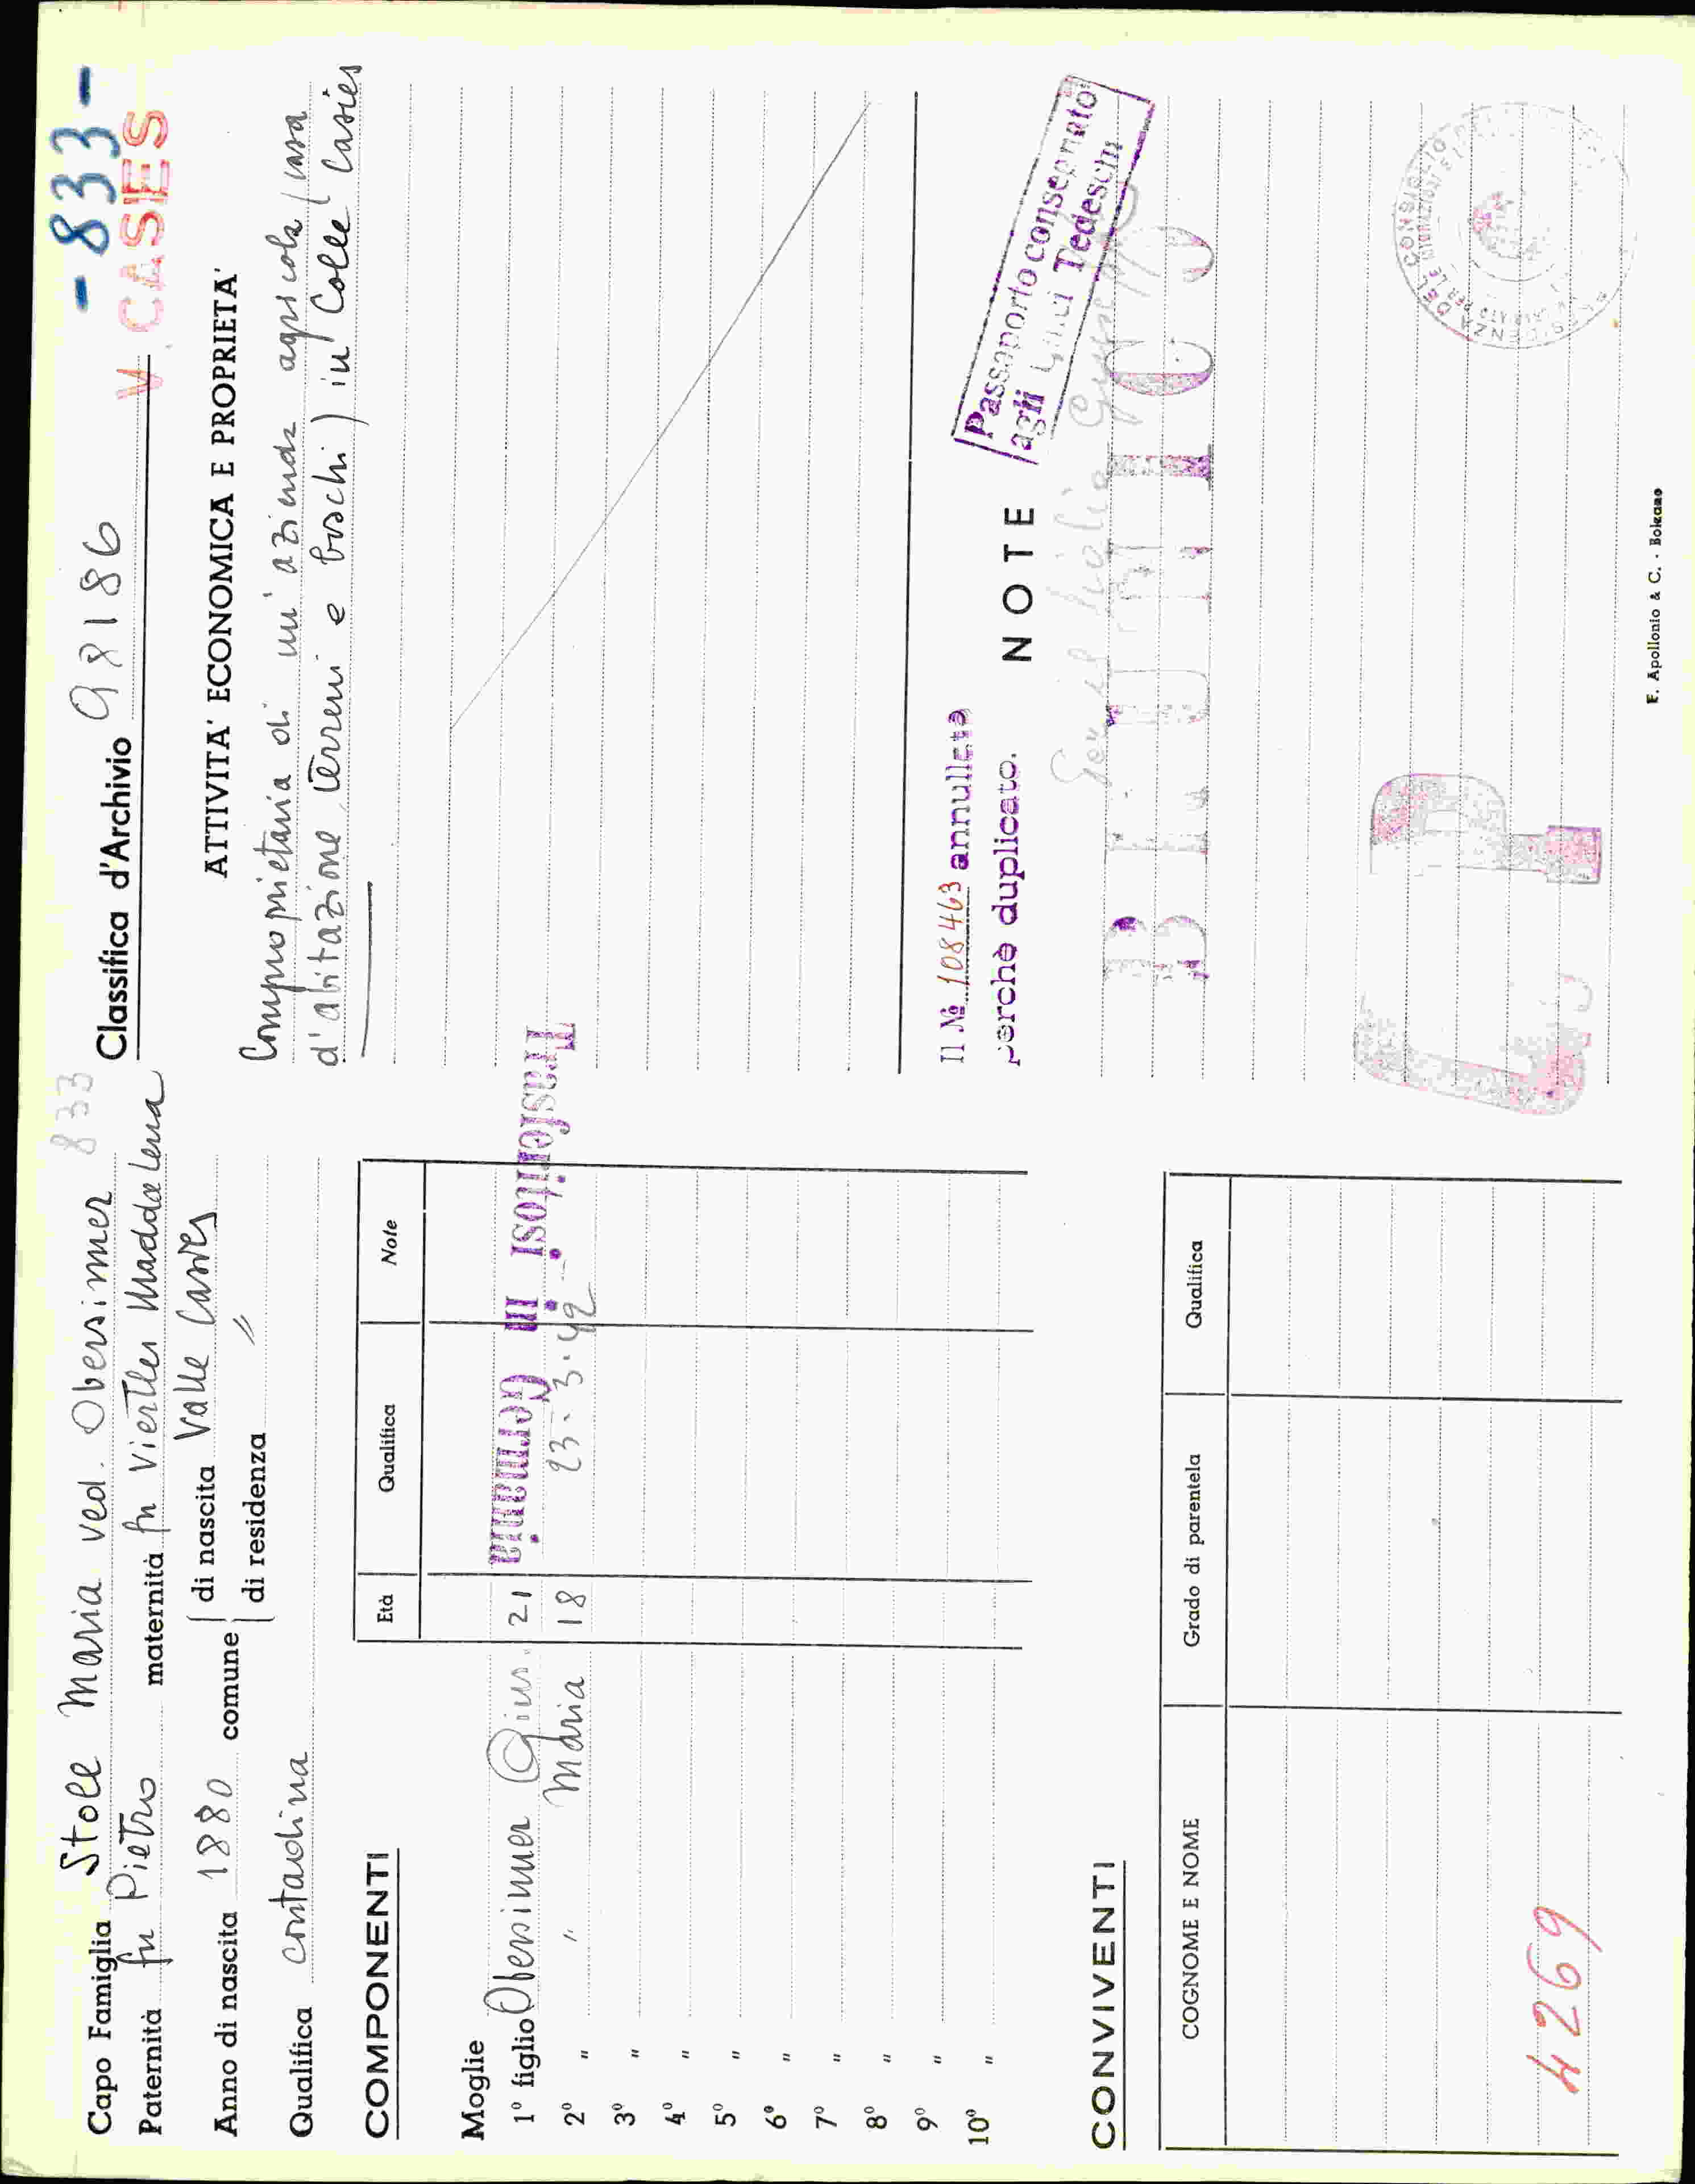 Capo Famiglia Stoll Maria ved. Obersimmer 833
Paternità fu Pietro maternità fu Viertler Maddalena
Anno di nascita 1880 comune di nascita Valle Casies
di residenza "
Qualifica contadina
COMPONENTI
Età Qualifica Note
Moglie
1º figlio Obersimmer Gius. 21
2º " " Maria 18
3º "
4º "
5º "
6º "
7º "
8º "
9º "
10º "
Trasferitosi in Germania
23.3.42
CONVIVENTI
COGNOME E NOME Grado di parentela Qualifica
4269
- 833 -
Classifica d'Archivio 98186 V. CASIES
ATTIVITA' ECONOMICA E PROPRIETA'
Comproprietaria di un'azienda agricola (casa
d'abitazione, terreni e boschi) in Colle Casies
Il Nº 108463 annullato
perchè duplicato.
NOTE
Passaporto consegnato
agli Uffici Tedeschi
F. Apollonio & C. - Bolzano